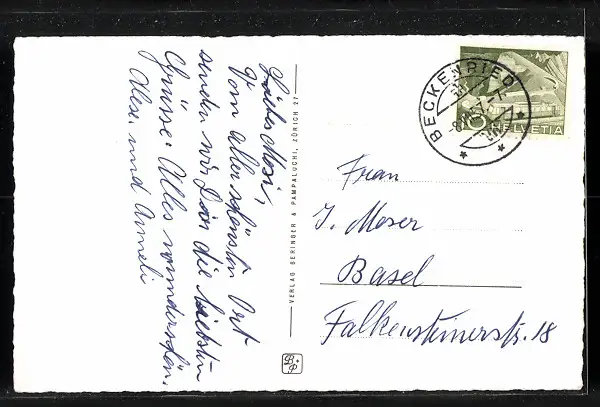 Liebes Mosi,
Vom aller schönsten Ort
senden wir Dir die liebsten
Grüsse. Alles wunderschön.
und Anneli
VERLAG BERINGER & PAMPALUCHI, ZÜRICH 27
B.P
BECKENRIED
HELVETIA
Frau
J. Moser
Basel
Falkensteinerstr. 18